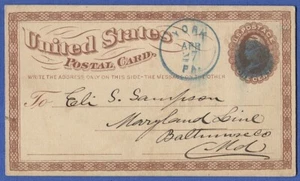 United States
POSTAL CARD.
WRITE THE ADDRESS ONLY ON THIS SIDE-THE MESSAGE ON THE OTHER
YORK
APR
PM
U.S. POSTAGE
To Eli S. Sampson
Maryland Line
Baltimore Co
Md